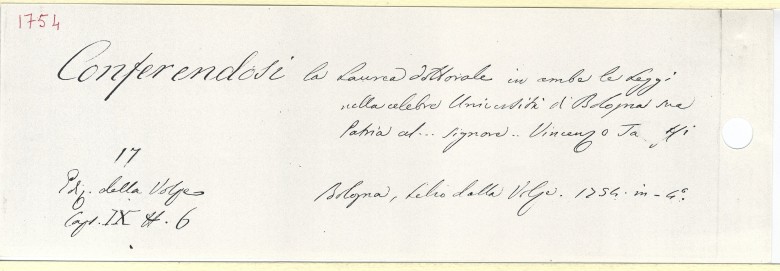 1754
Conferendosi la Laurea dottorale in ambe le Leggi
nella celebre Università di Bologna sua
Patria al... signore.. Vincenzo
17
della Volpe
Bologna, Lelio dalla Volpe. 1754. in-4°.
IX H. 6